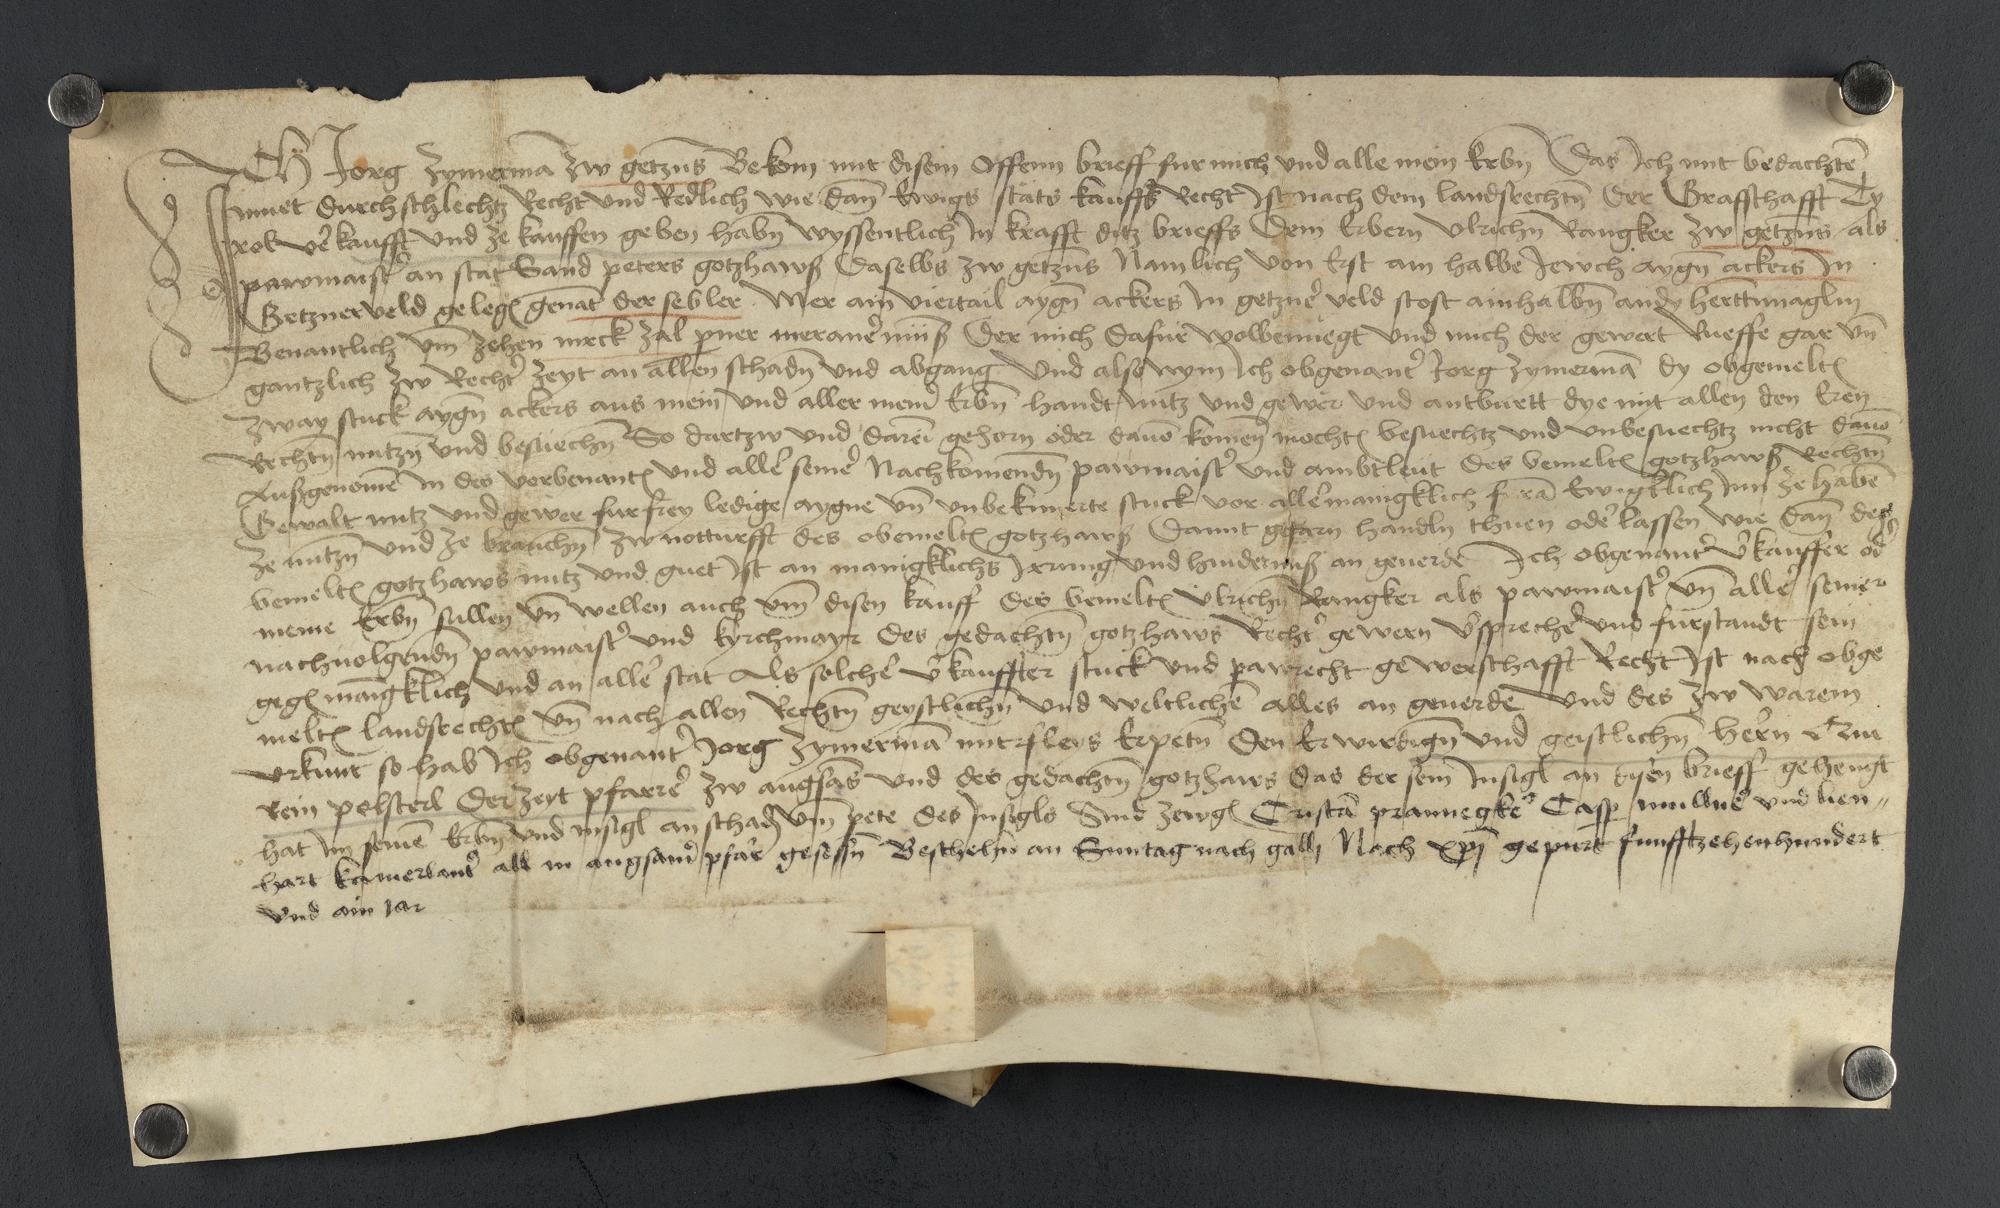 Ich Jorg Zymermā zw getzns Bekenn mit disem Offenn brieff fur mich vnd alle mein Erbn̄ Das Ich mit bedachtē
muet durchschlechtz Recht vnd Redlich wie dan̄ Ewigs stäts kauffs Recht Ist nach dem landsrechtn̄ Der Graffschafft Ty
rol v̉kaufft vnd ze kauffen geben habn̄ wyssentlich In krafft ditz brieffs Dem Erbern Vlrichn̄ Rangker zw getzns als
pawmaistˀ an stat Sand peters gotzhawß Daselbs zw getzns Namlich von Erst ain halbe Jewch aygn̄ ackers In
Getzner veld gelegn̄ genāt der sebler Mer ain viertail aygn̄ ackers In getznˀ veld stost ainhalbn̄ an dy herttmaglin
Benantlich vm̄ zehen mrck zal pner meranˀ münß Der mich dafur wolbenuegt vnd mich der gewert Rueffe gar vn̄
gantzlich zw Rechtˀ zeyt an allen schadn̄ vnd abgang Vnd also nym Ich obgenantˀ Jorg Zymermā dy obgemeltn̄
zway stuck aygn̄ ackers aus mein vnd aller meinˀ Erbn̄ handt nutz vnd gewer vnd antburtt dye mit allen den Eren
Rechtn̄ nutzn̄ vnd besuechn̄ So dartzw vnd darein̄ gehorn oder dauō komen mochtn̄ besuechtz vnd vnbesuechtz nicht dauō
Außgenomē In des vorbenantn̄ vnd allˀ seinˀ Nachkomendn̄ pawmaistˀ vnd ambtleut des bemeltn̄ gotzhawß Rechtn̄
Gewalt nutz vnd gewer fur frey ledige aygne vn̄ vnbekumerte stuck vor allˀmanigklich furā Ewigklich Inn ze habē
ze nutzn̄ vnd ze brauchn̄ zw notturfft des obemeltn̄ gotzhawß Damit gefarn handln thuen odˀ lassen wie dan̄ des
bemeltn̄ gotzhaws nutz vnd guet Ist an manigklichs Irrung vnd hindernuß an geuerde Ich obgenantˀ v̉kauffer odˀ
meine Erbn̄ sullen vn̄ wellen auch vm̄ disen kauff des bemeltn̄ Vlrichn̄ Rangker als pawmaistˀ vn̄ allˀ seiner
nachuolgendn̄ pawmaistˀ vnd kyrchmayr des gedachtn̄ gotzhaws Rechtˀ gewern v̉sprecher vnd furstandt sein
gegn̄ manigklich vnd an allˀ stat Als solchˀ v̉kauffter stuck vnd pawrecht gewerschafft Recht Ist nach obge
meltn̄ landsrechtn̄ vn̄ nach allen Rechtn̄ geystlichn̄ vnd weltlichē alles an geuerde Vnd des zw warem
vrkunt so hab Ich obgenantˀ Jorg Zymermā mit fleys Erpetn̄ Den Erwirdign̄ vnd geistlichn̄ hern̄
polsterl Der zeyt pfarrˀ zw augsās vnd des gedachtn̄ gotzhaws das der sein Insigl an disen brieff gehengt
hat Im seinē Erbn̄ vnd insigl an schadn̄ vm̄ pete des Insigls Sind zewgn̄ Cristā prannegkˀ Casp̄ mullnˀ vnd lien〃
hart kamerlantˀ all in augsanˀ pfarr gesessn̄ Beschehn̄ an Suntag nach galli Nach xp̄i gepurt funfftzehenhundert
vnd ain Iar